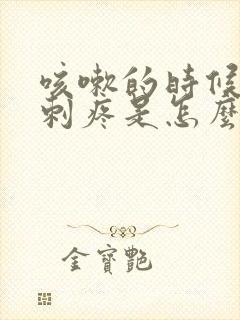 咳嗽的時候
刺疼是怎麼
金寶艷